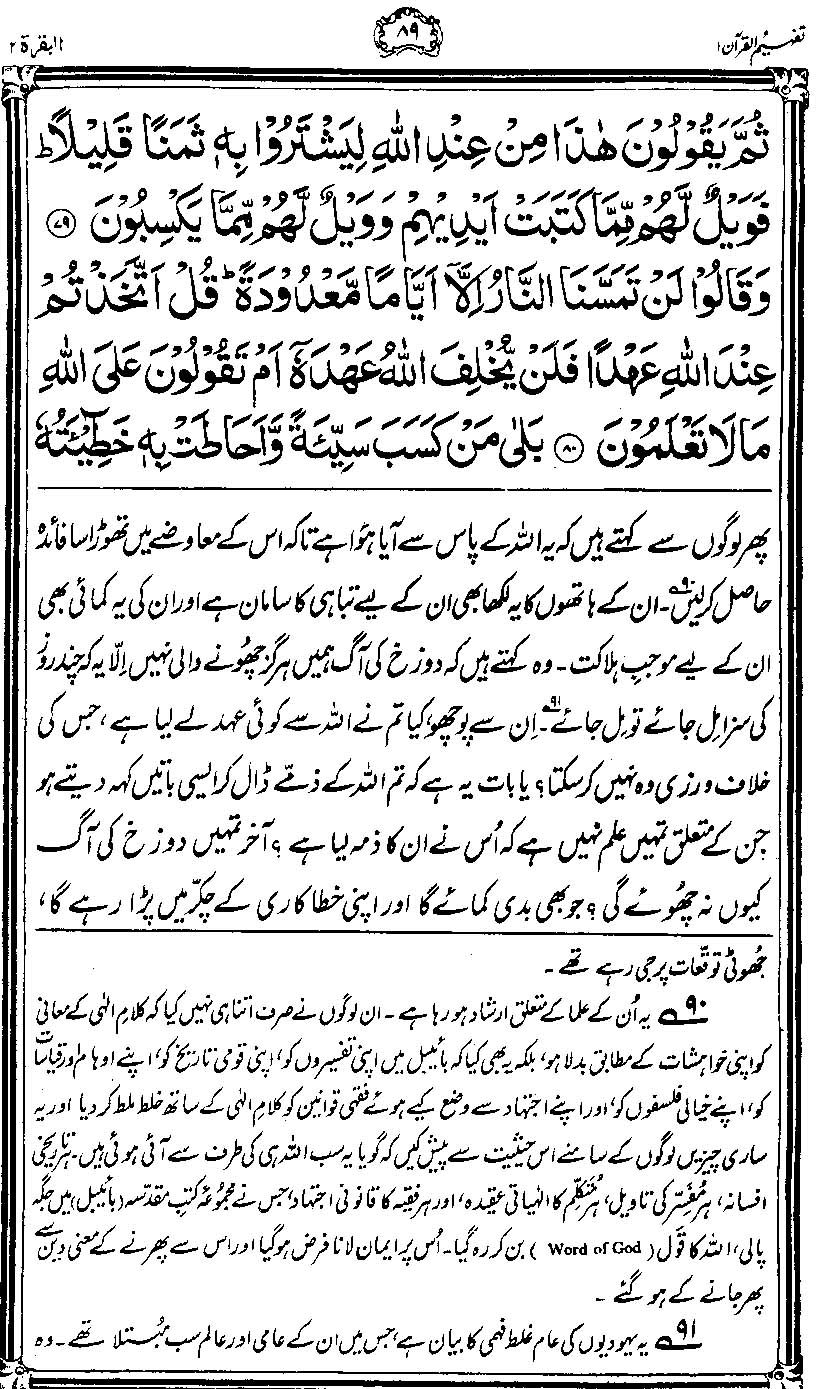 تفہیم القرآن ۱
۸۹
البقرۃ ۲
ثُمَّ يَقُوْلُوْنَ هٰذَا مِنْ عِنْدِ اللّٰهِ لِيَشْتَرُوْا بِهٖ ثَمَنًا قَلِيْلًا ؕ
فَوَيْلٌ لَّهُمْ مِّمَّا كَتَبَتْ اَيْدِيْهِمْ وَوَيْلٌ لَّهُمْ مِّمَّا يَكْسِبُوْنَ ﴿۷۹﴾
وَقَالُوْا لَنْ تَمَسَّنَا النَّارُ اِلَّاۤ اَيَّامًا مَّعْدُوْدَةً ؕ قُلْ اَتَّخَذْتُمْ
عِنْدَ اللّٰهِ عَهْدًا فَلَنْ يُّخْلِفَ اللّٰهُ عَهْدَهٗۤ اَمْ تَقُوْلُوْنَ عَلَى اللّٰهِ
مَا لَا تَعْلَمُوْنَ ﴿۸۰﴾ بَلٰى مَنْ كَسَبَ سَيِّئَةً وَّاَحَاطَتْ بِهٖ خَطِيْٓـَٔتُهٗ
پھر لوگوں سے کہتے ہیں کہ یہ اللہ کے پاس سے آیا ہؤا ہے تاکہ اس کے معاوضے میں تھوڑا سا فائدہ
حاصل کرلیں۹۰۔ ان کے ہاتھوں کا یہ لکھا بھی ان کے لیے تباہی کا سامان ہے اور ان کی یہ کمائی بھی
ان کے لیے موجبِ ہلاکت۔ وہ کہتے ہیں کہ دوزخ کی آگ ہمیں ہرگز چھُونے والی نہیں اِلّا یہ کہ چند روز
کی سزا مِل جائے تو مِل جائے۹۱۔ اِن سے پوچھو، کیا تم نے اللہ سے کوئی عہد لے لیا ہے، جس کی
خلاف ورزی وہ نہیں کرسکتا؟ یا بات یہ ہے کہ تم اللہ کے ذمّے ڈال کر ایسی باتیں کہہ دیتے ہو
جن کے متعلق تمہیں علم نہیں ہے کہ اُس نے ان کا ذمہ لیا ہے؟ آخر تمہیں دوزخ کی آگ
کیوں نہ چھُوئے گی؟ جو بھی بدی کمائے گا اور اپنی خطاکاری کے چکّر میں پڑا رہے گا،
جھُوٹی توقّعات پر جی رہے تھے۔
۹۰ یہ اُن کے علما کے متعلق ارشاد ہو رہا ہے۔ ان لوگوں نے صرف اتنا ہی نہیں کیا کہ کلامِ الٰہی کے معانی
کو اپنی خواہشات کے مطابق بدلا ہو، بلکہ یہ بھی کیا کہ بائیبل میں اپنی تفسیروں کو، اپنی قومی تاریخ کو، اپنے اوہام اور قیاسات
کو، اپنے خیالی فلسفوں کو، اور اپنے اجتہاد سے وضع کیے ہوئے فقہی قوانین کو کلامِ الٰہی کے ساتھ خلط ملط کر دیا اور یہ
ساری چیزیں لوگوں کے سامنے اس حیثیت سے پیش کیں کہ گویا یہ سب اللہ ہی کی طرف سے آئی ہوئی ہیں۔ ہر تاریخی
افسانہ، ہر مُفسِّر کی تاویل، ہر مُتکلِّم کا الٰہیاتی عقیدہ، اور ہر فقیہ کا قانونی اجتہاد، جس نے مجموعۂ کتبِ مقدّسہ (بائیبل) میں جگہ
پالی، اللہ کا قَول (Word of God) بن کر رہ گیا۔ اُس پر ایمان لانا فرض ہوگیا اور اس سے پھرنے کے معنی دین سے
پھر جانے کے ہو گئے۔
۹۱ یہ یہودیوں کی عام غلط فہمی کا بیان ہے، جس میں ان کے عامی اور عالم سب مُبتلا تھے۔ وہ